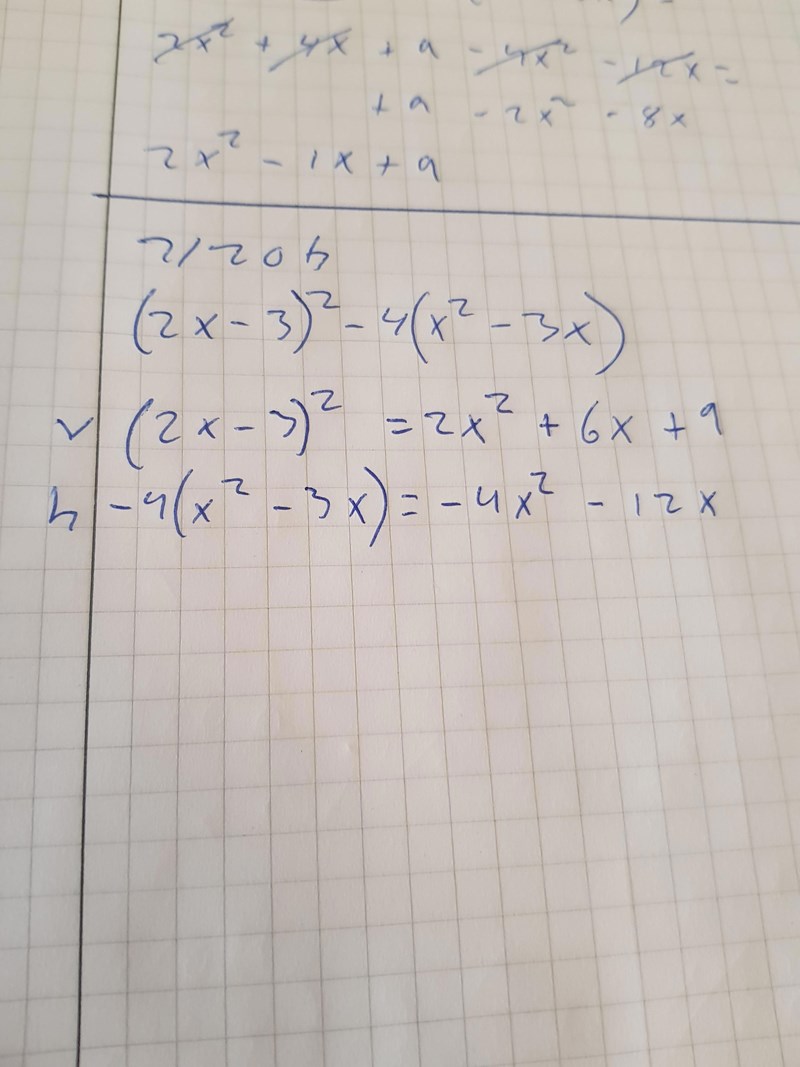 2x² + 4x + 9 - 4x² - 12x =
+ 9 - 2x² - 8x
2x² - 1x + 9
2120 b
(2x - 3)² - 4(x² - 3x)
v (2x - 3)² = 2x² + 6x + 9
h - 4(x² - 3x) = - 4x² - 12x